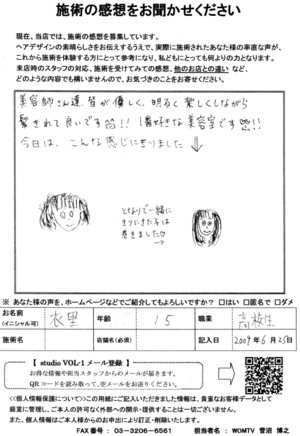 施術の感想をお聞かせください
現在、当店では、施術の感想を募集しています。
ヘアデザインの素晴らしさをお伝えするうえで、実際に施術されたあなた様の率直な声が、
これから施術を体験する方にとって参考になり、私どもにとっても何よりの力となります。
来店時のスタッフの対応、施術を受けてみての感想、他のお店との違い など、
どのような内容でも構いませんので、お気づきのことをお寄せください。
美容師さん達 皆が優しく、明るく 楽しくしながら
髪きれて良いです!! 1番好きな美容室です!!
今日は、こんな感じにきりました
となりで一緒に
きりにきた子は
巻きました
※ あなた様の声を、ホームページなどでご紹介してもよろしいですか? □はい □匿名で □ダメ
お名前
(イニシャル可)
衣里
年齢
15
職業
高校生
施術名
店舗名(必須)
記入日
2009年6月25日
【 studio VOL-1 メール登録 】
お得な情報や担当スタッフからのメールが届きます。
QRコードを読み取って、空メールをお送りください。
<<個人情報保護について>>この用紙にご記入いただきました情報は、貴重なお客様データとして
厳重に管理し、ご本人の許可なく外部への開示・提供することは一切ございません。
また、個人情報はご本人様からのお申出により訂正・削除いたします。
FAX番号: 03-3206-6561 担当者名: WOMTV 菅沼 博之